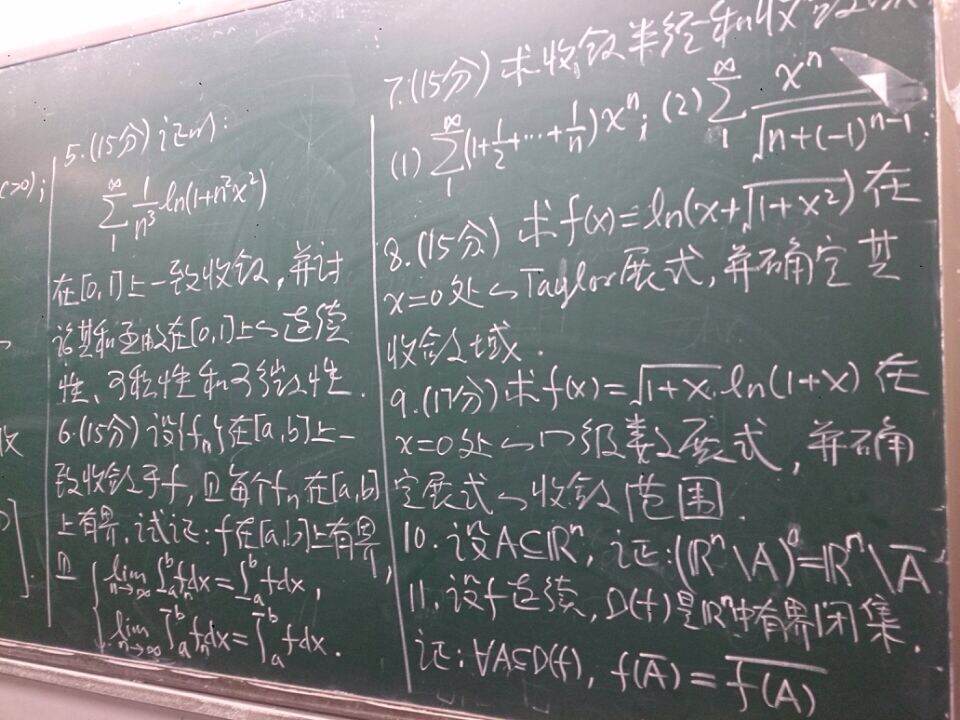 c>0);
5.(15分)证明:
∑_1^∞ 1/n³ ln(1+n²x²)
在[0,1]上一致收敛,并讨
论其和函数在[0,1]上的连续
性、可积性和可微性.
6.(15分)设{fₙ}在[a,b]上一
致收敛于f,且每个fₙ在[a,b]
上有界.试证:f在[a,b]上有界,
且
lim_{n→∞} ∫_a^b fₙdx = ∫_a^b fdx,
lim_{n→∞} ∫_a^b fₙdx = ∫_a^b fdx.
7.(15分)求收敛半径和收敛
(1) ∑_1^∞ (1+1/2+⋯+1/n)xⁿ; (2) ∑_1^∞ xⁿ/√(n+(-1)^{n-1}).
8.(15分)求f(x)=ln(x+√(1+x²))在
x=0处的Taylor展式,并确定其
收敛域.
9.(17分)求f(x)=√(1+x)·ln(1+x)在
x=0处的级数展式,并确
定展式的收敛范围.
10.设A⊆ℝⁿ,证:(ℝⁿ\A)⁰=ℝⁿ\A̅
11.设f连续,D(f)是ℝⁿ中有界闭集.
证:∀A⊆D(f), f(A̅)=\overline{f(A)}